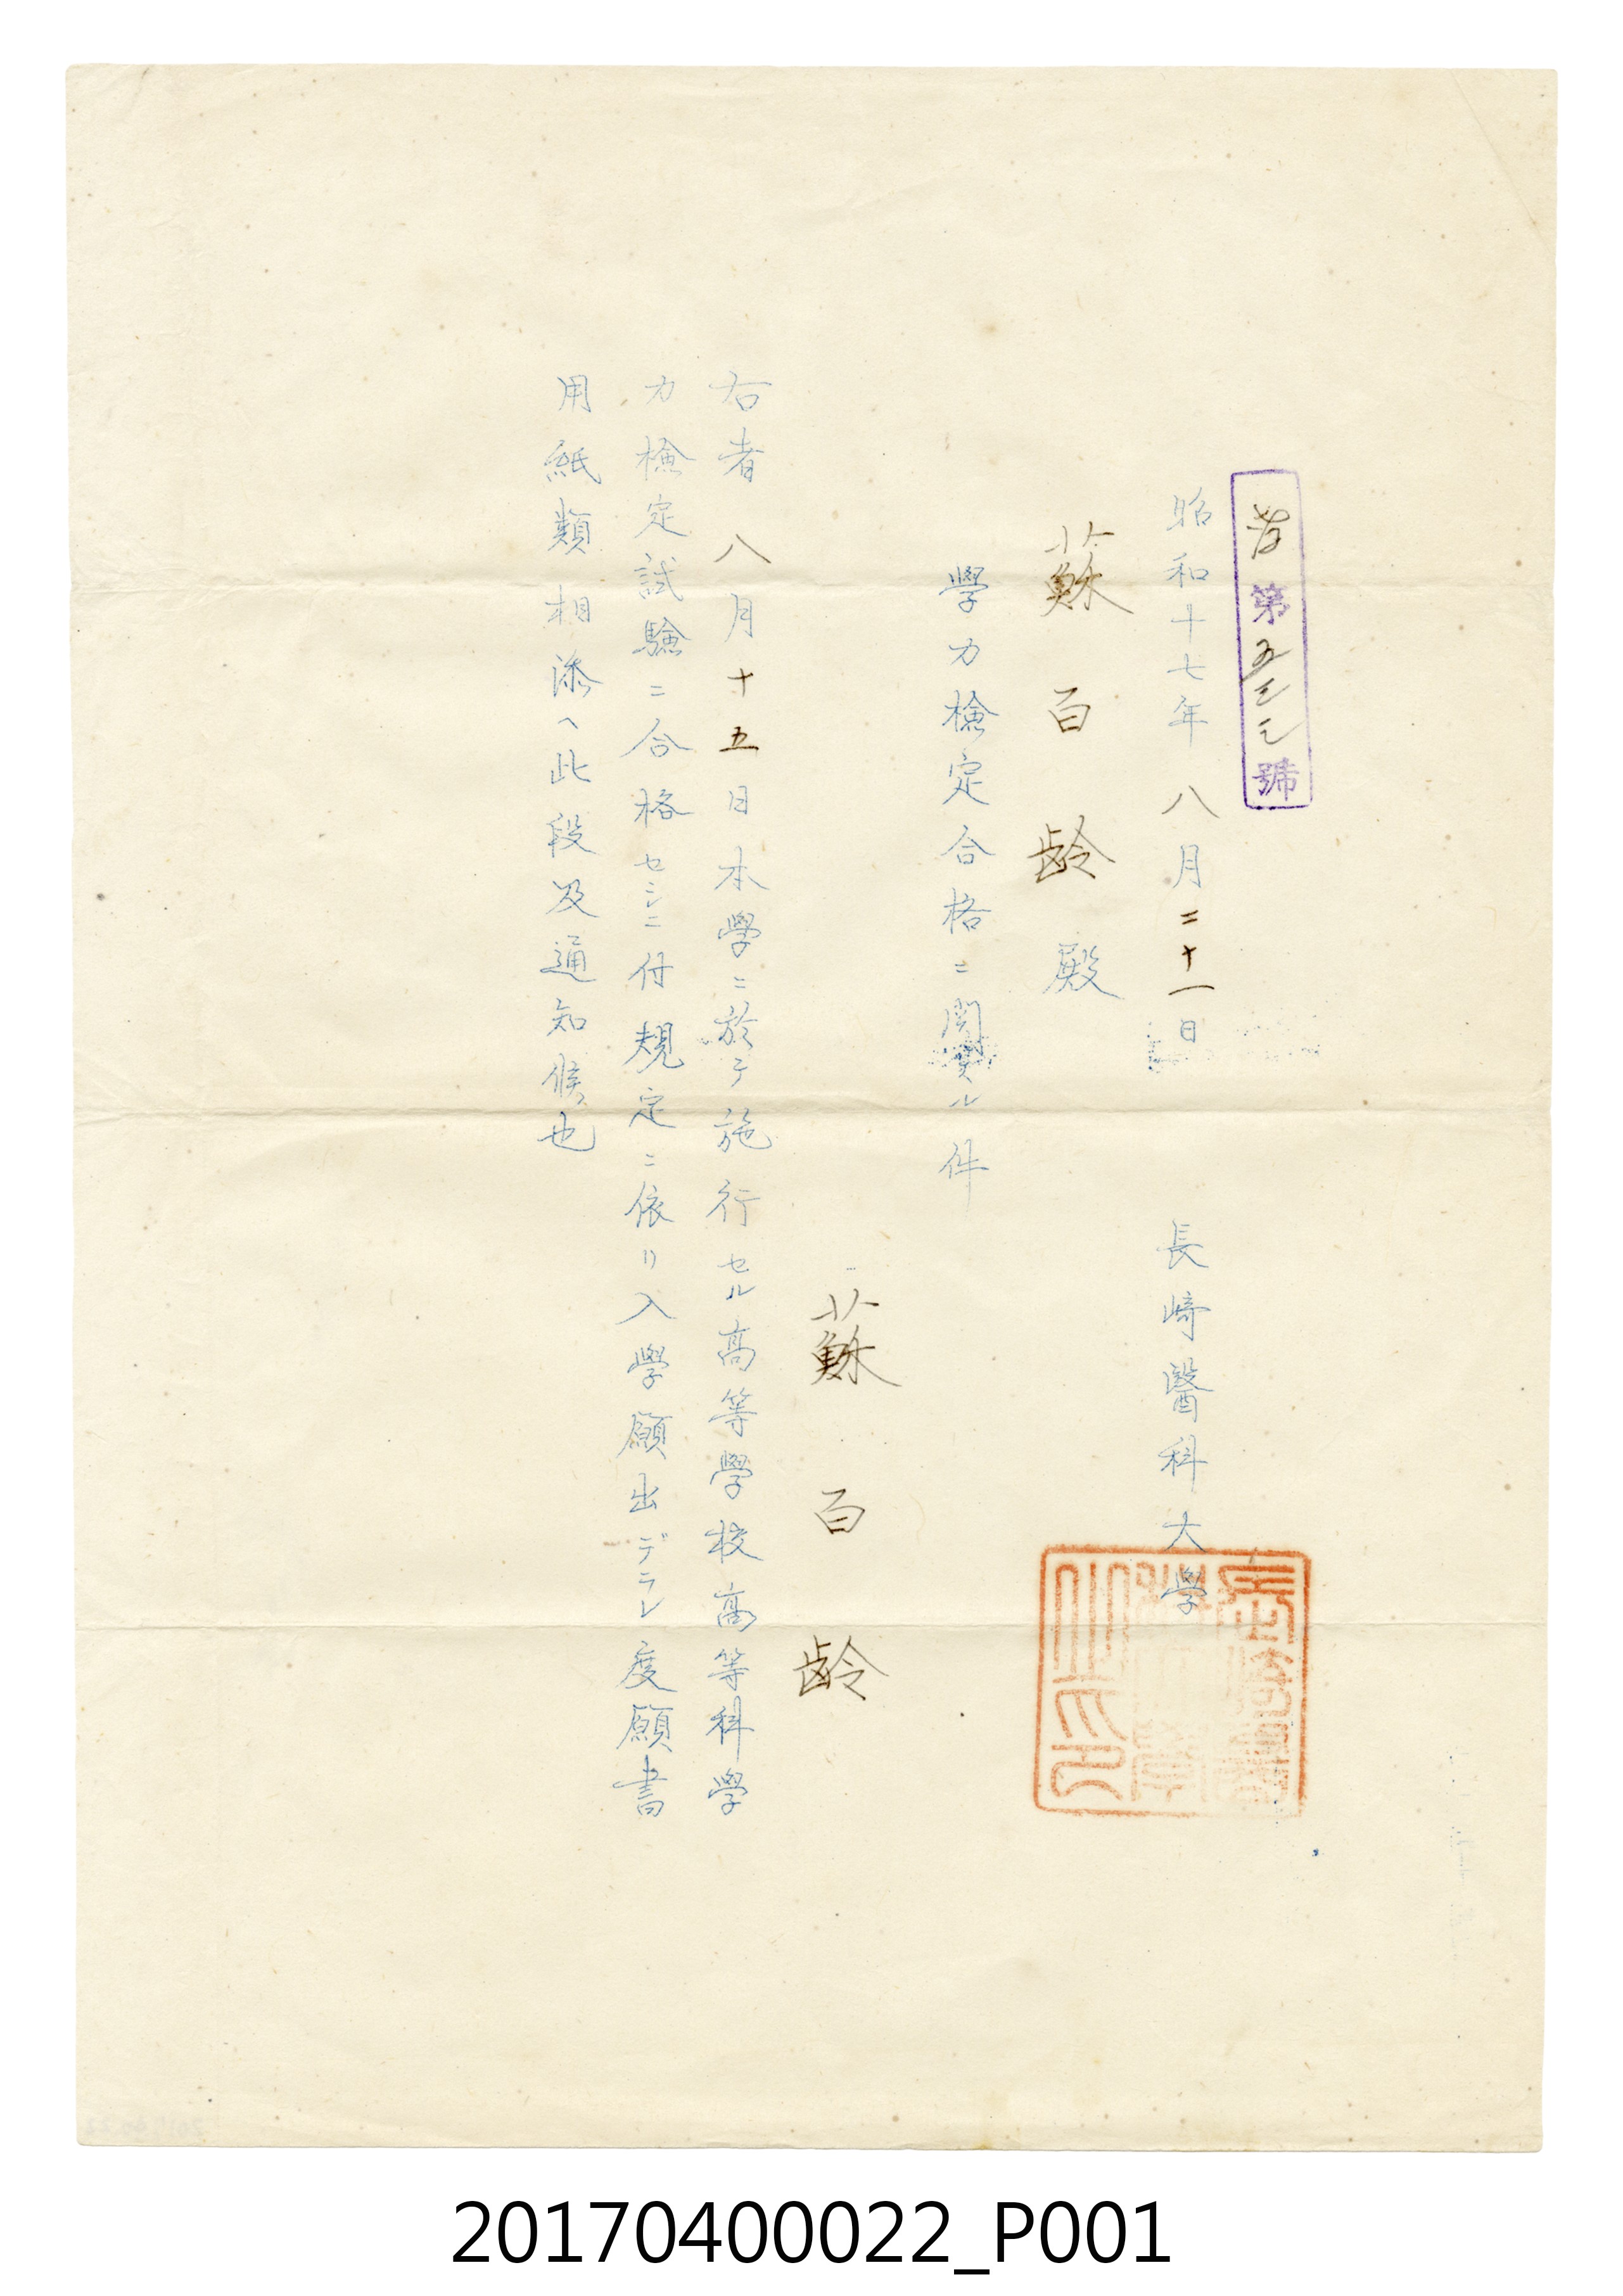 第五三三號
昭和十七年八月二十一日
長崎醫科大學
蘇百齢殿
學力檢定合格ニ関スル件
蘇百齢
右者八月十五日本學ニ於テ施行セル高等學校高等科學
力檢定試驗ニ合格セシニ付規定ニ依リ入學願出デラレ度願書
用紙類相添ヘ此段及通知候也
20170400022_P001